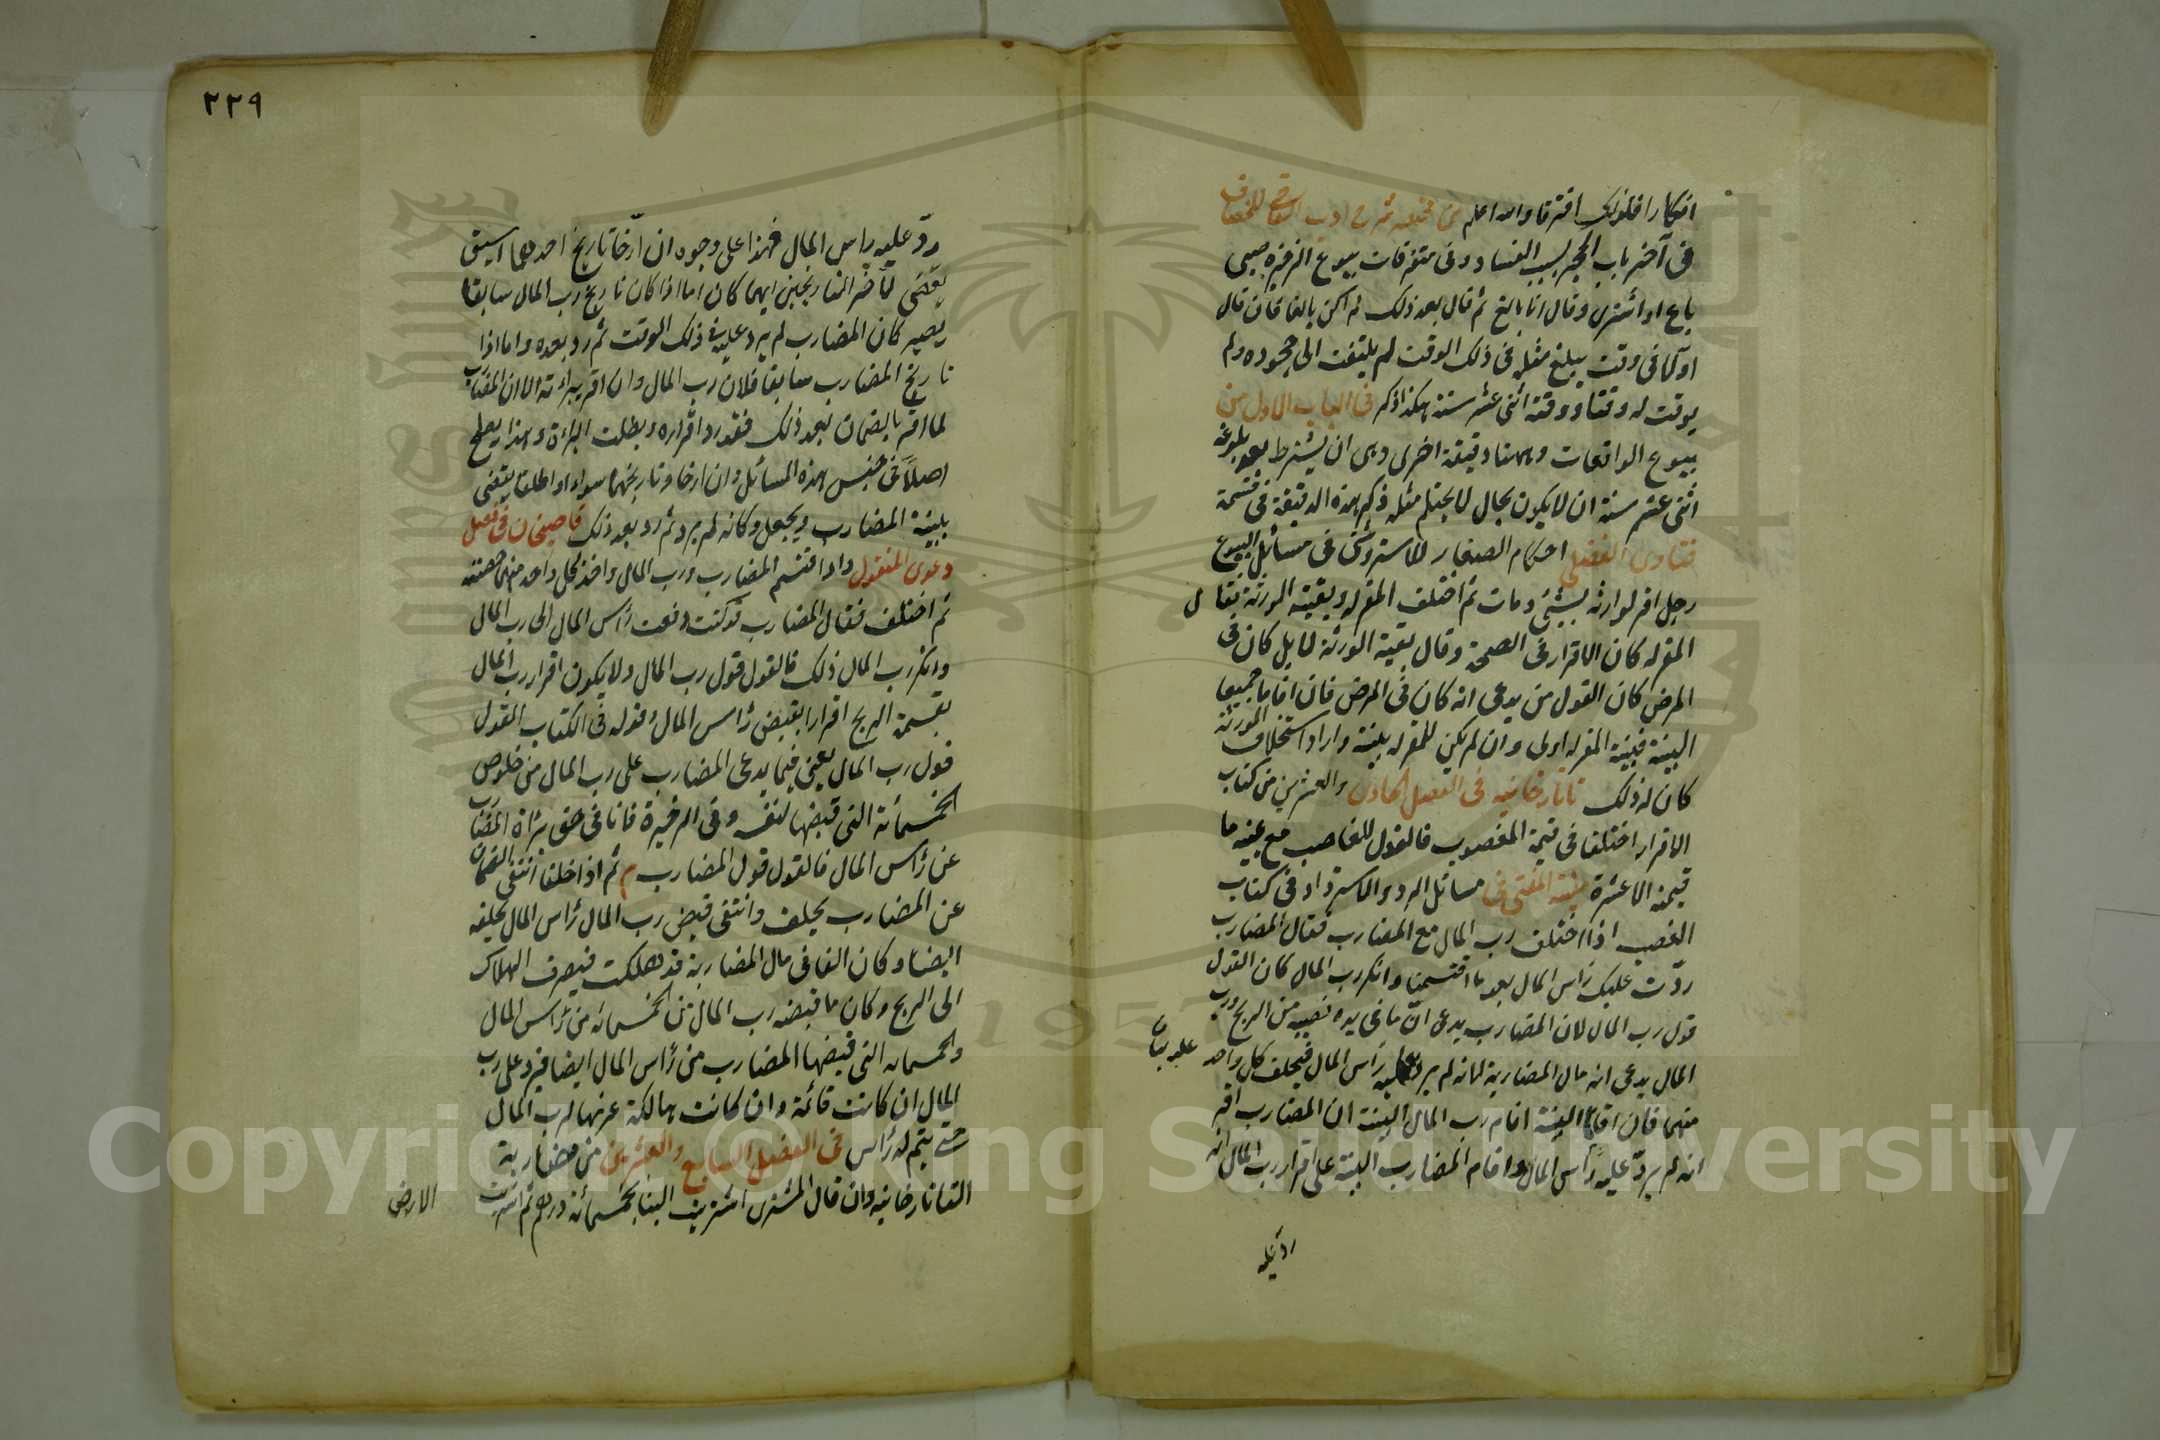 انكارا فلذلك افترقا والله اعلم من شرح ادب القاضي للخصاف
فى آخر باب الحجر بسبب الفساد وفى متفرقات بيوع الذخيرة صبى
باع او اشترى وقال انا بالغ ثم قال بعد ذلك لم اكن بالغا فان قال
اولا فى وقت يبلغ مثله فى ذلك الوقت لم يلتفت الى جحوده ولم
يوقت له وقتا ووقته اثنى عشر سنة هكذا ذكر فى الباب الاول من
بيوع الواقعات وههنا دقيقة اخرى وهى ان يشترط بعد بلوغه
اثنى عشر سنة ان لا يكون بحال لا يحتلم مثله ذكر هذه الدقيقة فى قسمة
فتاوى الفضلى احكام الصغار للاستروشنى فى مسائل البيوع
رجل اقر لوارثه بشيئ ومات ثم اختلف المقر له وبقية الورثة فقال
المقر له كان الاقرار فى الصحة وقال بقية الورثة لا بل كان فى
المرض كان القول من يدعى انه كان فى المرض فان اقاما جميعا
البينة فبينة المقر له اولى وان لم يكن للمقر له بينة واراد استحلاف الورثة
كان له ذلك تاتارخانيه فى الفصل الحادى والعشرين من كتاب
الاقرار اختلفا فى قيمة المغصوب فالقول للغاصب مع يمينه ما
قيمته الا عشرة منية المفتى فى مسائل الرد والاسترداد فى كتاب
الغصب اذا اختلف رب المال مع المضارب فقال المضارب
ردّت عليك رأس المال بعد ما اقتسمنا وانكر رب المال كان القول
قول رب المال لان المضارب يدعى انّ ما فى يده نصيبه من الربح ورب
المال يدعى انه مال المضاربة لما انه لم يرد عليه رأس المال فيحلف كل واحد
منهما فان اقاما البينة اقام رب المال البينة ان المضارب اقر
انه لم يردّ عليه رأس المال واقام المضارب البينة على اقرار رب المال انه
ردّ عليه
٢٢٩
ردّ عليه راس المال فهذا على وجوه ان ارخا تاريخ احدهما اسبق
يقضى لآخر التاريخين ايهما كان اما اذا كان تاريخ رب المال سابقا
يصير كان المضارب لم يرد عليه فى ذلك الوقت ثم رد بعده واما اذا
تاريخ المضارب سابقا فلان رب المال وان اقر ببراءته الا ان المضارب
لما اقر بالضمان بعد ذلك فقد رد اقراره وبطلت البراءة وهذا يصلح
اصلاً فى جنس هذه المسائل وان ارخا وتاريخهما سواء او اطلقا يقضى
ببينة المضارب ويجعل وكانه لم يرد ثم رد بعد ذلك قاضيخان فى فصل
دعوى المنقول واذا اقتسم المضارب ورب المال واخذ كل واحد منهما حصته
ثم اختلف فقال المضارب قد كنت دفعت رأس المال الى رب المال
وانكر رب المال ذلك فالقول قول رب المال ولا يكون اقرار رب المال
بقسمة الربح اقرارا بقبض رأس المال وقوله فى الكتاب القول
قول رب المال يعنى فيما يدعى المضارب على رب المال من خلوص
الخمسمائة التى قبضها لنفسه وفى الذخيرة فاما فى حق براءة المضارب
عن رأس المال فالقول قول المضارب م ثم اذا حلفا انتفى الضمان
عن المضارب بحلفه وانتفى قبض رب المال رأس المال بحلفه
ايضا وكان الفا فى مال المضاربة قد هلكت فيصرف الهلاك
الى الربح وكان ما قبضه رب المال من الخمسمائه من رأس المال
والخمسمائه التى قبضها المضارب من رأس المال ايضا فيرد على رب
المال ان كانت قائمة وان كانت هالكة غرمها لرب المال
حتى يتم له رأس فى الفصل السابع والعشرين من مضاربة
التاتارخانيه وان قال المشترى اشتريت البنا بخمسمائة درهم ثم اشتريت
الارض